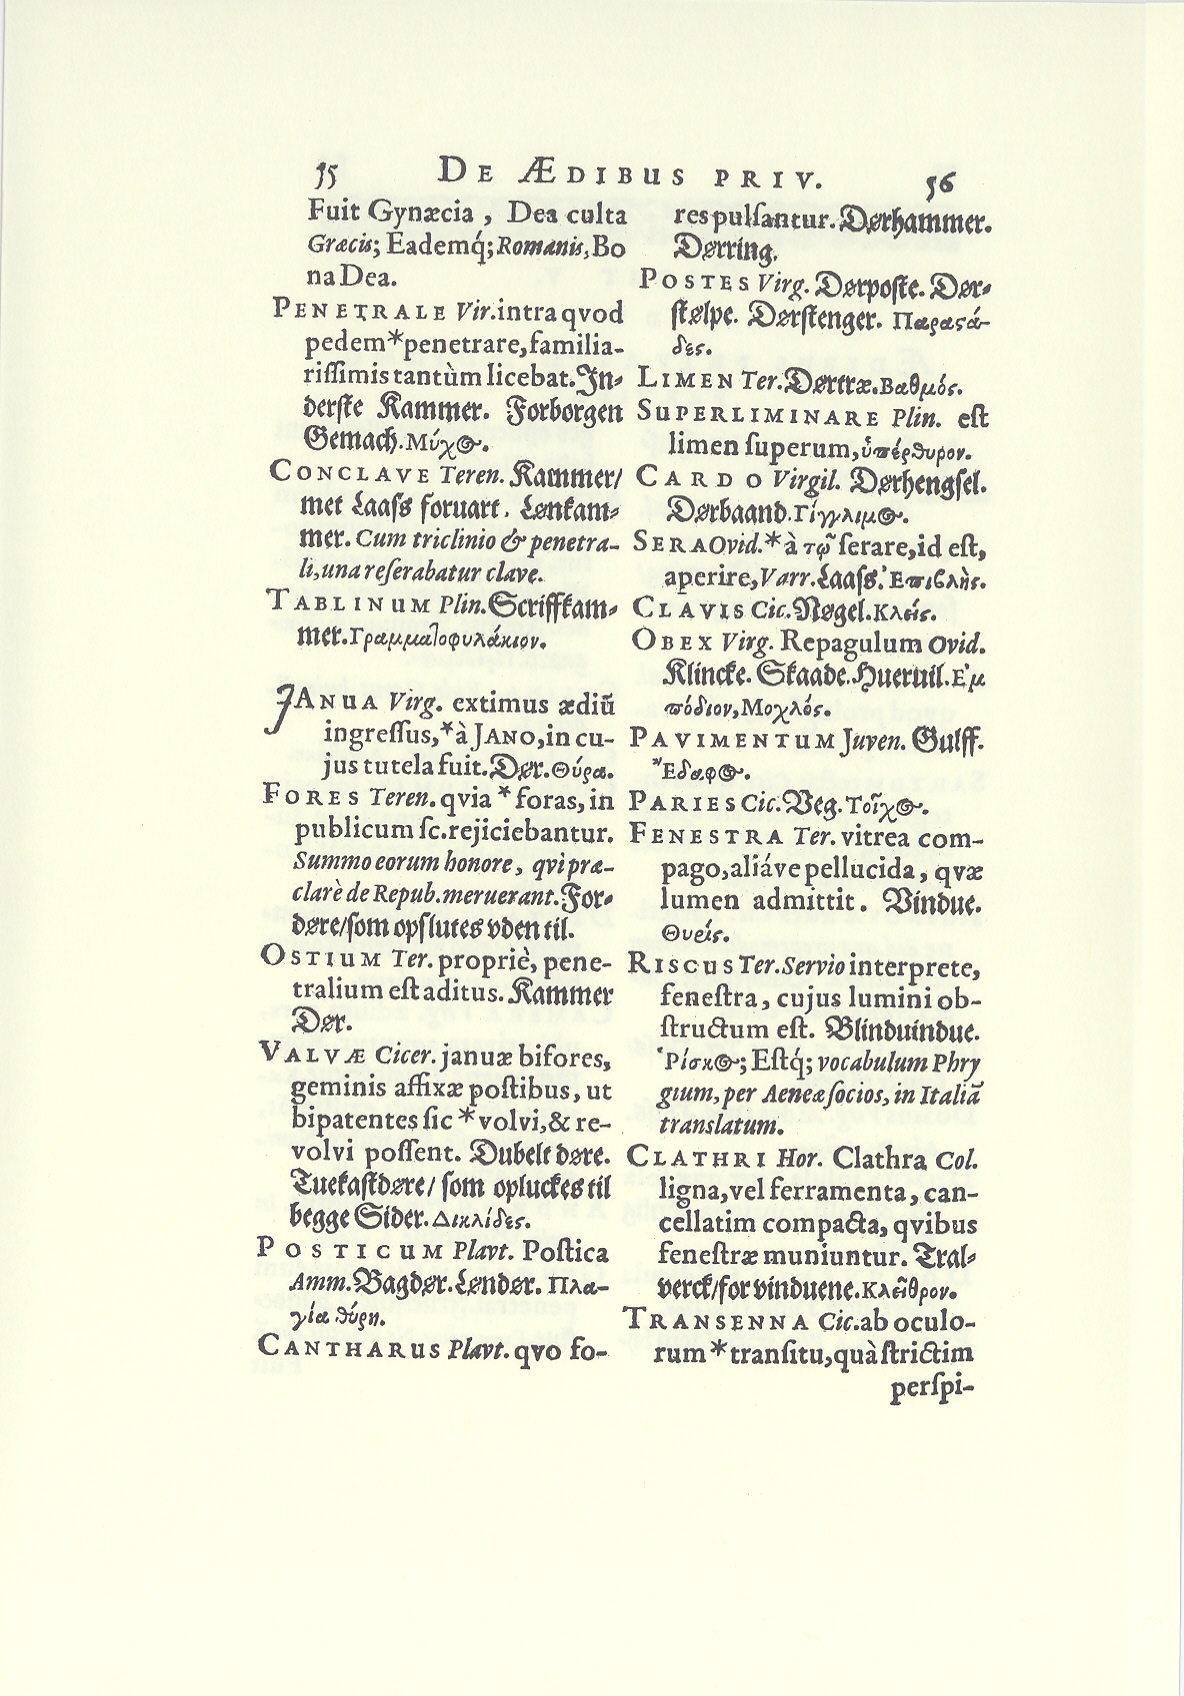 55 DE ÆDIBUS PRIV. 56
Fuit Gynæcia, Dea culta
Græcis; Eademq́; Romanis, Bo
na Dea.
PENETRALE Vir. intra qvod
pedem * penetrare, familia-
rissimis tantùm licebat. In-
derste Kammer. Forborgen
Gemach. Μύχος.
CONCLAVE Teren. Kammer/
met Laass foruart. Lønkam-
mer. Cum triclinio & penetra-
li, una reserabatur clave.
TABLINUM Plin. Scriffkam-
mer. Γραμματοφυλάκιον.
JANUA Virg. extimus ædiũ
ingressus, * à JANO, in cu-
jus tutela fuit. Dør. Θύρα.
FORES Teren. qvia * foras, in
publicum sc. rejiciebantur.
Summo eorum honore, qvi præ-
clarè de Repub. meruerant. For-
døre/ som opslutes vden til.
OSTIUM Ter. propriè, pene-
tralium est aditus. Kammer
Dør.
VALVÆ Cicer. januæ bifores,
geminis affixæ postibus, ut
bipatentes sic * volvi, & re-
volvi possent. Dubelt døre.
Tuekastdøre/ som opluckes til
begge Sider. Δικλίδες.
POSTICUM Plavt. Postica
Amm. Bagdør. Løndør. Πλα-
γία θύρη.
CANTHARUS Plavt. qvo fo-
res pulsantur. Dørhammer.
Dørring.
POSTES Virg. Dørposte. Dør-
stølpe. Dørstenger. Παραςά-
δες.
LIMEN Ter. Dørtræ. Βαθμός.
SUPERLIMINARE Plin. est
limen superum, ὑπέρθυρον.
CARDO Virgil. Dørhengsel.
Dørbaand. Γίγγλιμος.
SERA Ovid. * à τῷ serare, id est,
aperire, Varr. Laass. Ἐπιβλὴς.
CLAVIS Cic. Nøgel. Κλείς.
OBEX Virg. Repagulum Ovid.
Klincke. Skaade. Hueruil. Ἐμ
πόδιον, Μοχλός.
PAVIMENTUM Juven. Gulff.
Ἔδαφος.
PARIES Cic. Veg. Τοῖχος.
FENESTRA Ter. vitrea com-
pago, aliáve pellucida, qvæ
lumen admittit. Vindue.
Θυείς.
RISCUS Ter. Servio interprete,
fenestra, cujus lumini ob-
structum est. Blinduindue.
Ῥίσκος; Estq́; vocabulum Phry
gium, per Aeneæ socios, in Italiã
translatum.
CLATHRI Hor. Clathra Col.
ligna, vel ferramenta, can-
cellatim compacta, qvibus
fenestræ muniuntur. Tral-
verck/ for vinduene. Κλεῖθρον.
TRANSENNA Cic. ab oculo-
rum * transitu, quà strictim
perspi-